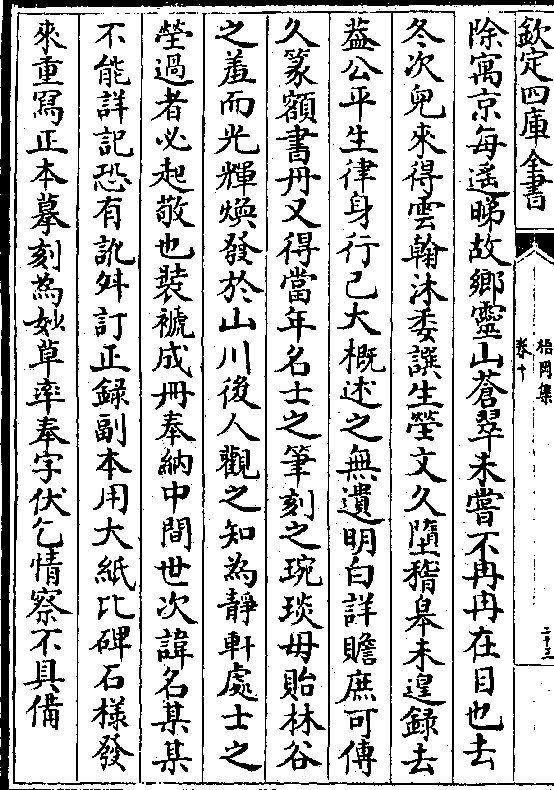 欽定四庫全書
梧岡集
卷十
二十三
除寓京每遥睇故鄉靈山蒼翠未嘗不冉冉在目也去
冬次兒來得雲翰沐委譔生瑩文久墮稽皋未遑録去
葢公平生律身行己大槪述之無遺明白詳贍庶可傳
久篆額書丹又得當年名士之筆刻之琬琰毋貽林谷
之羞而光輝煥發於山川後人觀之知為靜軒處士之
瑩過者必起敬也裝褫成冊奉納中間世次諱名某某
不能詳記恐有訛舛訂正録副本用大紙比碑石樣發
來重冩正本摹刻為妙草率奉字伏乞情察不具備